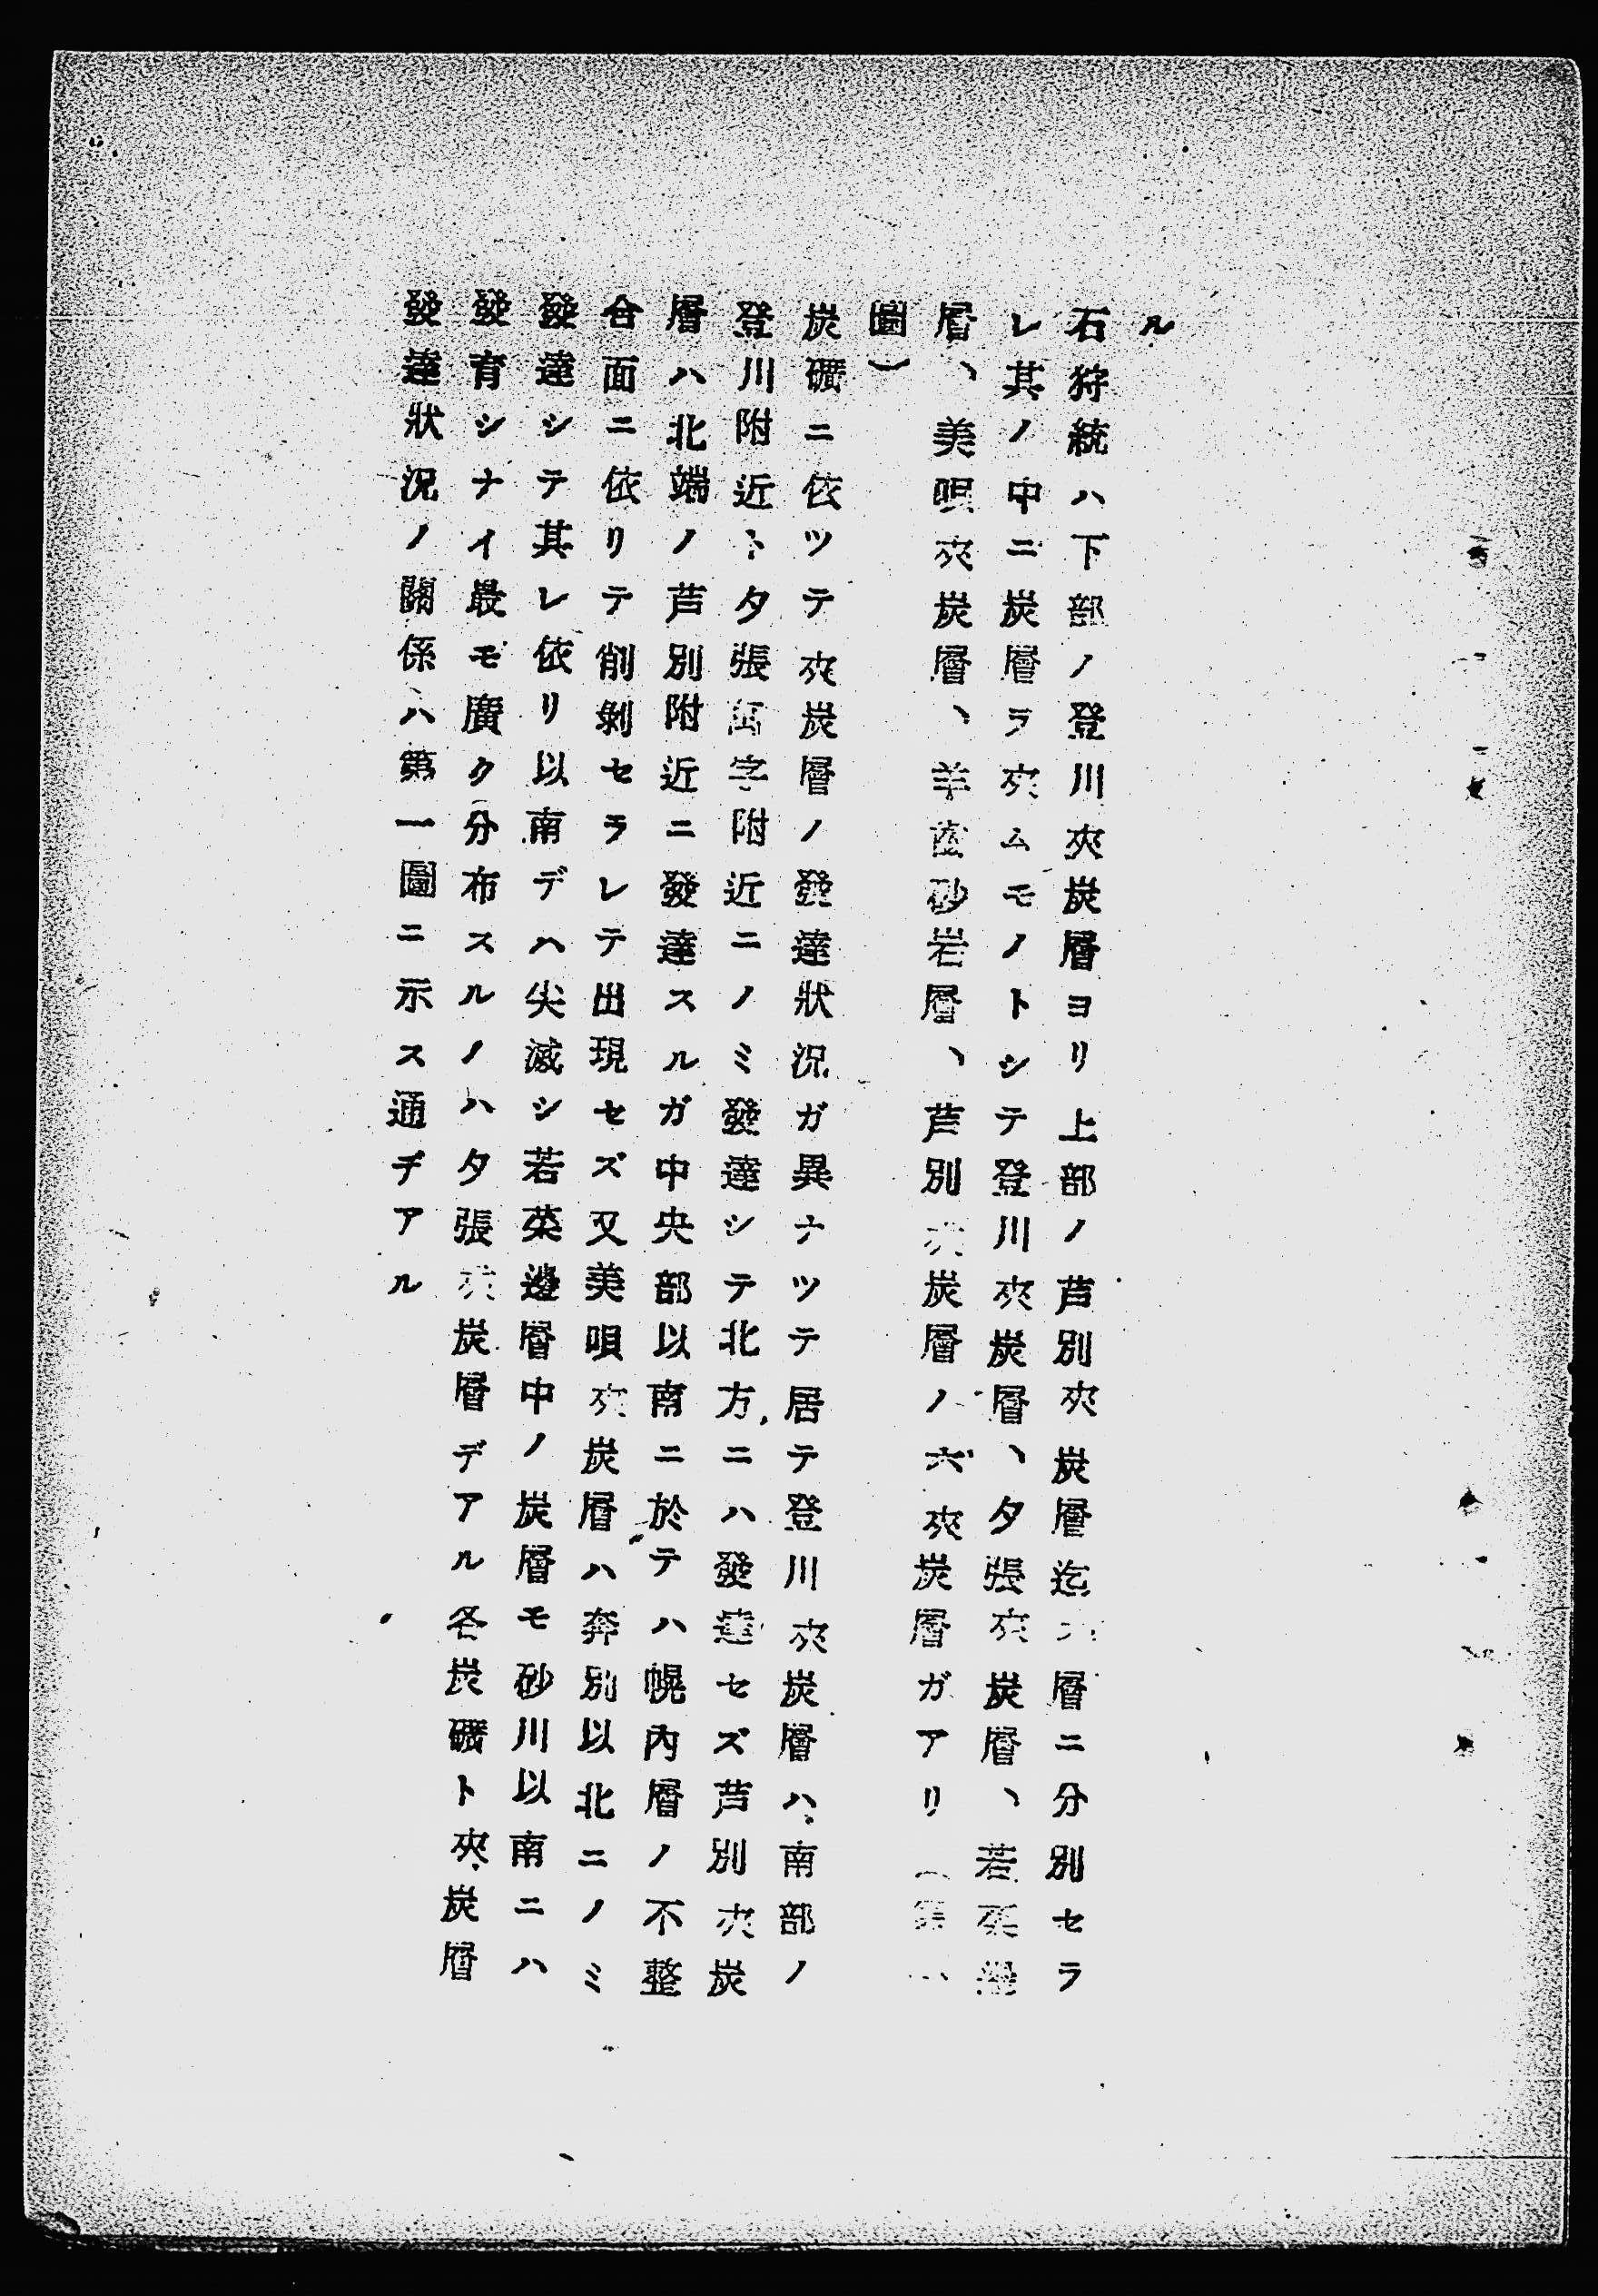 ル
石狩統ハ下部ノ登川夾炭層ヨリ上部ノ芦別夾炭層迄 層ニ分別セラ
レ其ノ中ニ炭層ヲ夾ムモノトシテ登川夾炭層、夕張夾炭層、若菜邊
層、美唄夾炭層、羊齒砂岩層、芦別夾炭層ノ六夾炭層ガアリ(第一
圖)
炭礦ニ依ツテ夾炭層ノ發達狀況ガ異ナツテ居テ登川夾炭層ハ南部ノ
登川附近ト夕張萬字附近ニノミ發達シテ北方ニハ發達セズ芦別夾炭
層ハ北端ノ芦別附近ニ發達スルガ中央部以南ニ於テハ幌內層ノ不整
合面ニ依リテ削剝セラレテ出現セズ又美唄夾炭層ハ奔別以北ニノミ
發達シテ其レ依リ以南デハ尖滅シ若菜邊層中ノ炭層モ砂川以南ニハ
發育シナイ最モ廣ク分布スルノハ夕張夾炭層デアル各炭礦ト夾炭層
發達狀況ノ關係ハ第一圖ニ示ス通デアル